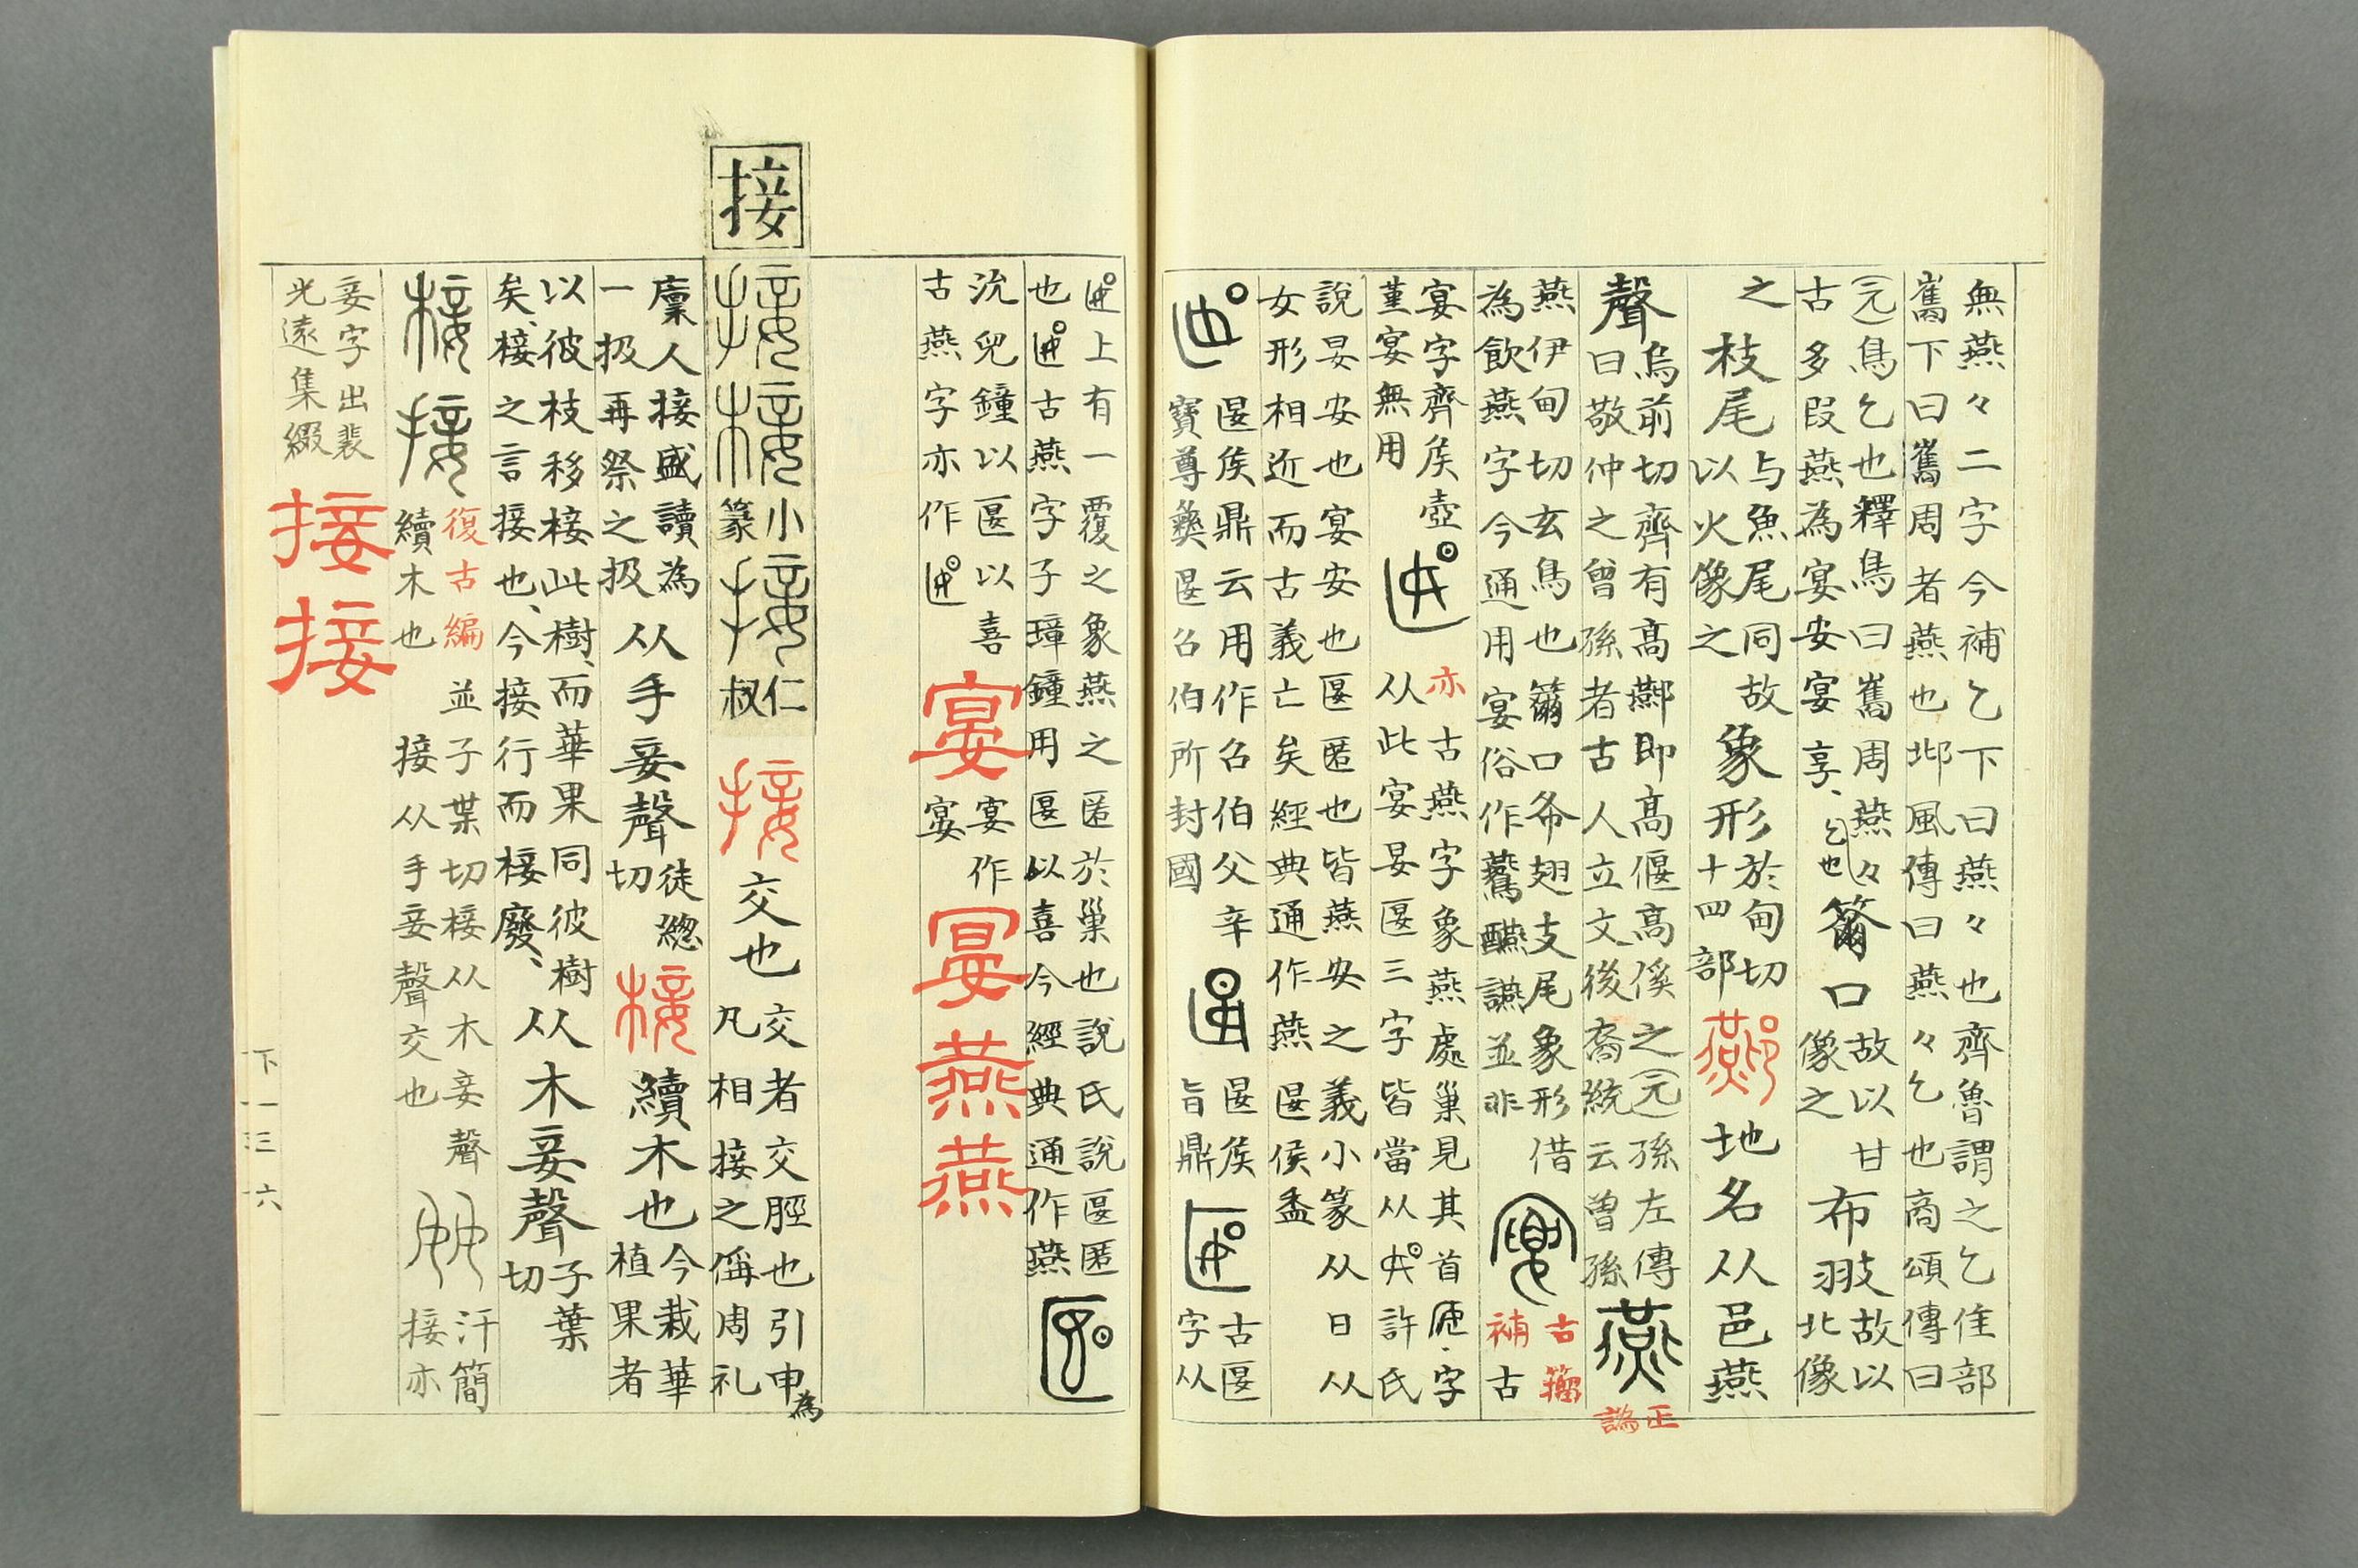 無燕々二字今補乙下曰燕々也齊魯謂之乙隹部
巂下曰巂周者燕也邶風傳曰燕々乙也商頌傳曰
(元)鳥乙也釋鳥曰巂周燕々乙也
古多叚燕為宴安宴享、
籋口
故以甘
像之
布翄
故以北像
之
枝尾
与魚尾同故
以火像之
象形
於甸切
十四部
酀
地名从邑燕
聲
烏前切齊有高酀即高偃高傒之(元)孫左傳
曰敬仲之曾孫者古人立文後裔統云曾孫
燕
正
譌
燕伊甸切玄鳥也籋口布翅支尾象形借
為飲燕字今通用宴俗作鷰醼讌並非
古籀
補
古
宴字齊矦壺
亦
古燕字象燕處巢見其首
字
堇宴無用
从此宴晏匽三字皆當从
許氏
說晏安也宴安也匽匿也皆燕安之義小篆从日从
女形相近而古義亡矣經典通作燕匽侯盉
匽矦鼎云用作召伯父辛
寶尊彝匽召伯所封國
匽矦
旨鼎
古匽
字从
上有一覆之象燕之匿於巢也說氏說匽匿
也
古燕字子璋鐘用匽以喜今經典通作燕
沇兒鐘以匽以喜
宴
宴作
宴
宴
燕
燕
古燕字亦作
接
接
椄
小
篆
接
仁
叔
接
交也
交者交脛也引申為
凡相接之偁周礼
廩人接盛讀為
一扱再祭之扱
从手妾聲
徒
切
椄
續木也
今栽華
植果者
以彼枝移椄此樹、而華果同彼樹
矣、椄之言接也、今接行而椄廢、
从木妾聲
子葉
切
椄
接
復古編
續木也
並子葉切椄从木妾聲
接从手妾聲交也
汗簡
接亦
妾字出裴
光遠集綴
接
接
下一三六